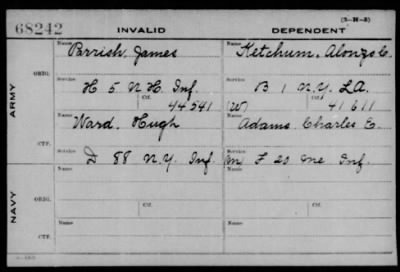 (3-H-3)
68242 INVALID DEPENDENT
Name Name
Parrish, James Ketchum, Alonzo C.
ORIG. Service Service
H 5 N.H. Inf. B 1 N.Y. L.A.
Ctf. Ctf.
44541 (W) 41611
ARMY Name Name
Ward, Hugh Adams, Charles E.
CTF. Service Service
D 88 N.Y. Inf. M F 20 Me Inf.
Name Name
ORIG. Ctf. Ctf.
NAVY Name Name
CTF.